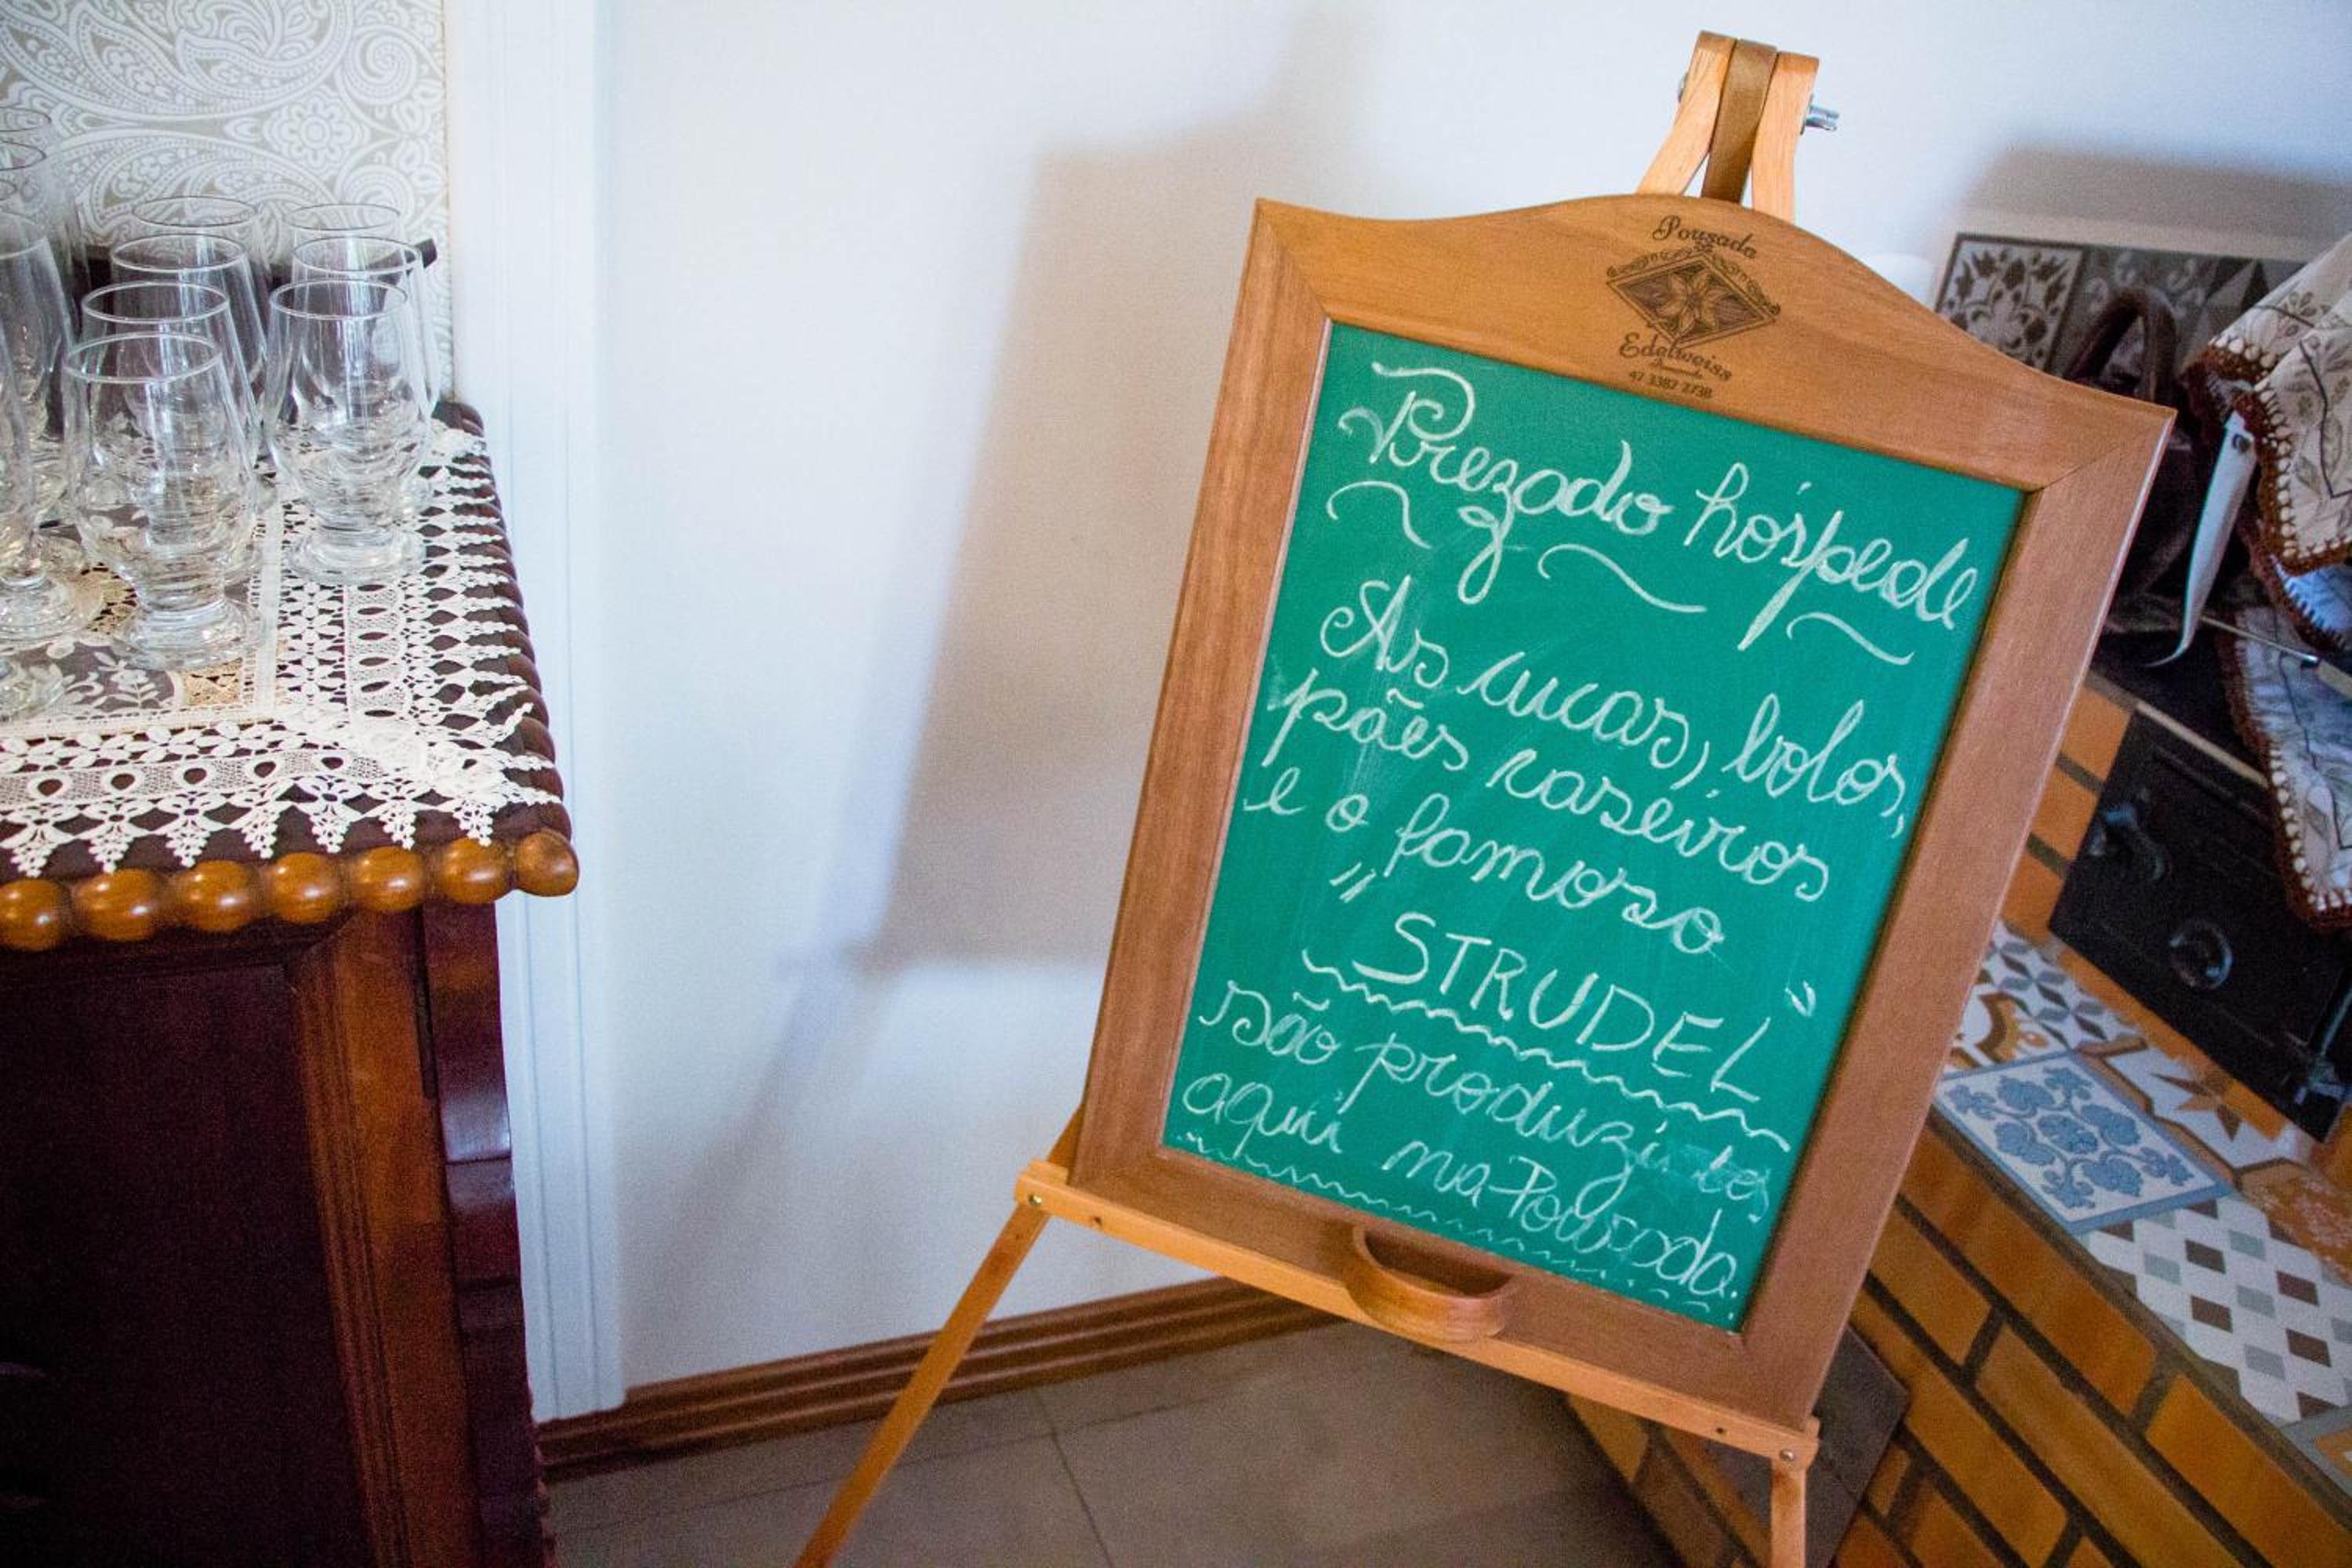 Pousada
Edelweiss
47 3387 2738
Prezado hóspede
As cucas, bolos,
pães caseiros
e o famoso
" STRUDEL "
São produzidos
aqui na Pousada.